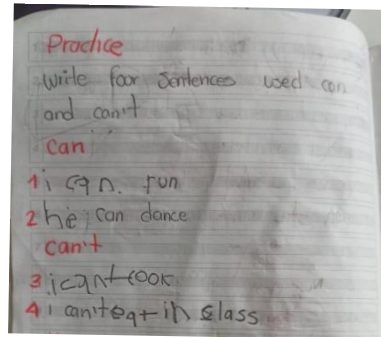 Practice
write foor sentences used can
and can't
can
1 i can. run
2 he can dance
can't
3 i can't cook
4 i can't eat in class